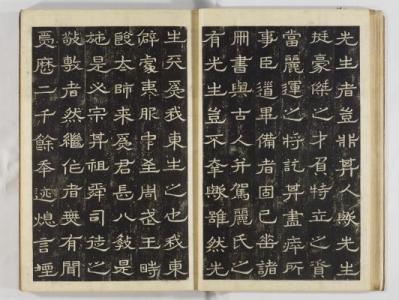 光生者豈非其人歟光生
挺豪傑之才負特立之資
當麗運之將訖其盡瘁所
事臣道畢備者固已垂諸
冊書與古人并駕麗氏之
有光生豈不幸歟誰然光
生天爲我東生之也我東
僻處夷服中至周武王時
殷太師來爲君長八敎是
施是必宗其祖舜司徒之
敬敷者然繼作者無有聞
焉歷二千餘秊迹熄言堙